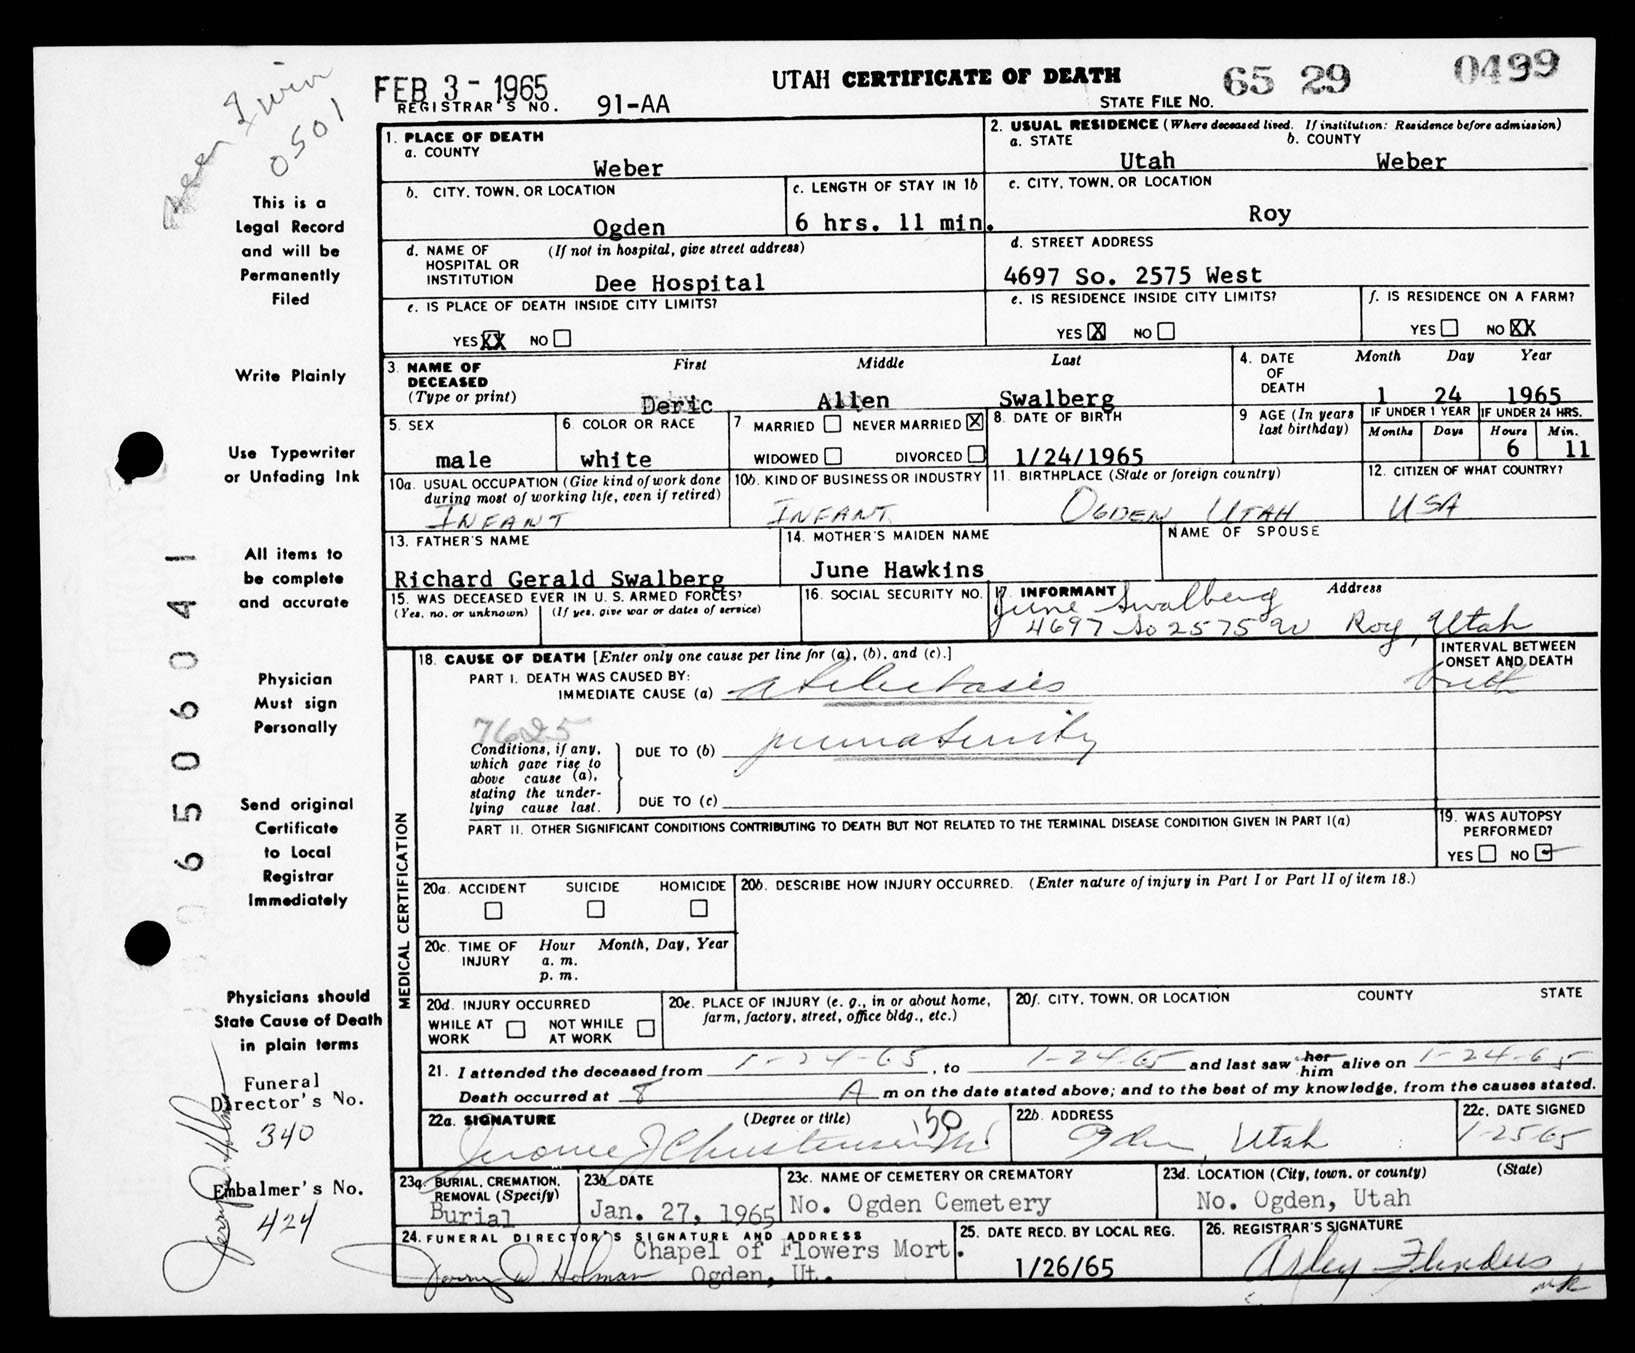 FEB 3 - 1965
UTAH CERTIFICATE OF DEATH
65 29
0499
REGISTRAR'S NO. 91-AA
STATE FILE NO.
Irwin
0501
This is a
Legal Record
and will be
Permanently
Filed
Write Plainly
Use Typewriter
or Unfading Ink
All items to
be complete
and accurate
Physician
Must sign
Personally
Send original
Certificate
to Local
Registrar
Immediately
Physicians should
State Cause of Death
in plain terms
Funeral
Director's No.
340
Embalmer's No.
424
Jerry D Holman
6506041
1. PLACE OF DEATH
a. COUNTY
Weber
2. USUAL RESIDENCE (Where deceased lived. If institution: Residence before admission)
a. STATE
b. COUNTY
Utah
Weber
b. CITY, TOWN, OR LOCATION
Ogden
c. LENGTH OF STAY IN 1b
6 hrs. 11 min.
c. CITY, TOWN, OR LOCATION
Roy
d. NAME OF HOSPITAL OR INSTITUTION
(If not in hospital, give street address)
Dee Hospital
d. STREET ADDRESS
4697 So. 2575 West
e. IS PLACE OF DEATH INSIDE CITY LIMITS?
YES XX NO
e. IS RESIDENCE INSIDE CITY LIMITS?
YES X NO
f. IS RESIDENCE ON A FARM?
YES NO XX
3. NAME OF DECEASED
(Type or print)
First Middle Last
Deric Allen Swalberg
4. DATE OF DEATH
Month Day Year
1 24 1965
5. SEX
male
6 COLOR OR RACE
white
7 MARRIED NEVER MARRIED X
WIDOWED DIVORCED
8. DATE OF BIRTH
1/24/1965
9 AGE (In years last birthday)
IF UNDER 1 YEAR
Months Days
IF UNDER 24 HRS.
Hours Min.
6 11
10a. USUAL OCCUPATION (Give kind of work done during most of working life, even if retired)
INFANT
10b. KIND OF BUSINESS OR INDUSTRY
INFANT
11. BIRTHPLACE (State or foreign country)
OGDEN UTAH
12. CITIZEN OF WHAT COUNTRY?
USA
13. FATHER'S NAME
Richard Gerald Swalberg
14. MOTHER'S MAIDEN NAME
June Hawkins
NAME OF SPOUSE
15. WAS DECEASED EVER IN U.S. ARMED FORCES?
(Yes, no, or unknown) (If yes, give war or dates of service)
16. SOCIAL SECURITY NO.
17. INFORMANT Address
June Swalberg
4697 So 2575 W Roy, Utah
MEDICAL CERTIFICATION
18. CAUSE OF DEATH [Enter only one cause per line for (a), (b), and (c).]
INTERVAL BETWEEN ONSET AND DEATH
PART I. DEATH WAS CAUSED BY:
IMMEDIATE CAUSE (a) atelectasis
birth
7625
Conditions, if any, which gave rise to above cause (a), stating the underlying cause last.
DUE TO (b) prematurity
DUE TO (c)
PART II. OTHER SIGNIFICANT CONDITIONS CONTRIBUTING TO DEATH BUT NOT RELATED TO THE TERMINAL DISEASE CONDITION GIVEN IN PART I(a)
19. WAS AUTOPSY PERFORMED?
YES NO
20a. ACCIDENT SUICIDE HOMICIDE
20b. DESCRIBE HOW INJURY OCCURRED. (Enter nature of injury in Part I or Part II of item 18.)
20c. TIME OF INJURY
Hour Month, Day, Year
a. m.
p. m.
20d. INJURY OCCURRED
WHILE AT WORK NOT WHILE AT WORK
20e. PLACE OF INJURY (e. g., in or about home, farm, factory, street, office bldg., etc.)
20f. CITY, TOWN, OR LOCATION COUNTY STATE
21. I attended the deceased from 1-24-65, to 1-24-65 and last saw her him alive on 1-24-65
Death occurred at 8 A m on the date stated above; and to the best of my knowledge, from the causes stated.
22a. SIGNATURE (Degree or title)
Jerome J Christensen MD
150
22b. ADDRESS
Ogden, Utah
22c. DATE SIGNED
1-25-65
23a. BURIAL, CREMATION, REMOVAL (Specify)
Burial
23b. DATE
Jan. 27, 1965
23c. NAME OF CEMETERY OR CREMATORY
No. Ogden Cemetery
23d. LOCATION (City, town, or county) (State)
No. Ogden, Utah
24. FUNERAL DIRECTOR'S SIGNATURE AND ADDRESS
Chapel of Flowers Mort.
Jerry D Holman Ogden, Ut.
25. DATE RECD. BY LOCAL REG.
1/26/65
26. REGISTRAR'S SIGNATURE
Arley Flinders